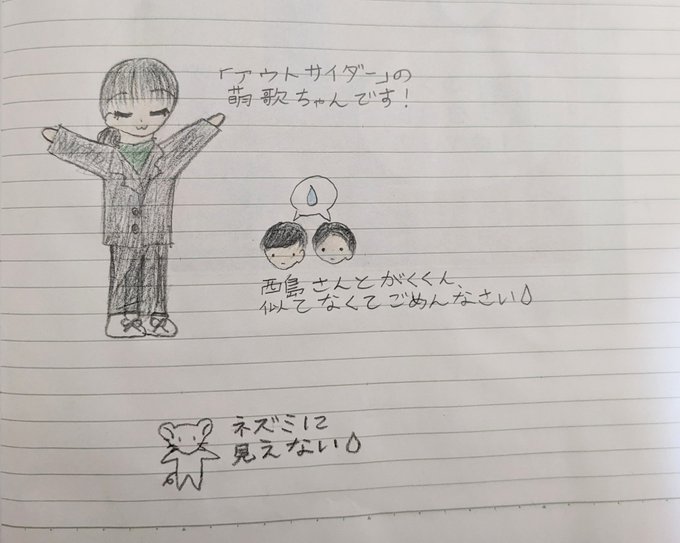 「アウトサイダー」の
萌歌ちゃんです!
西島さんとがくくん、
似てなくてごめんなさい💧
ネズミに
見えない💧